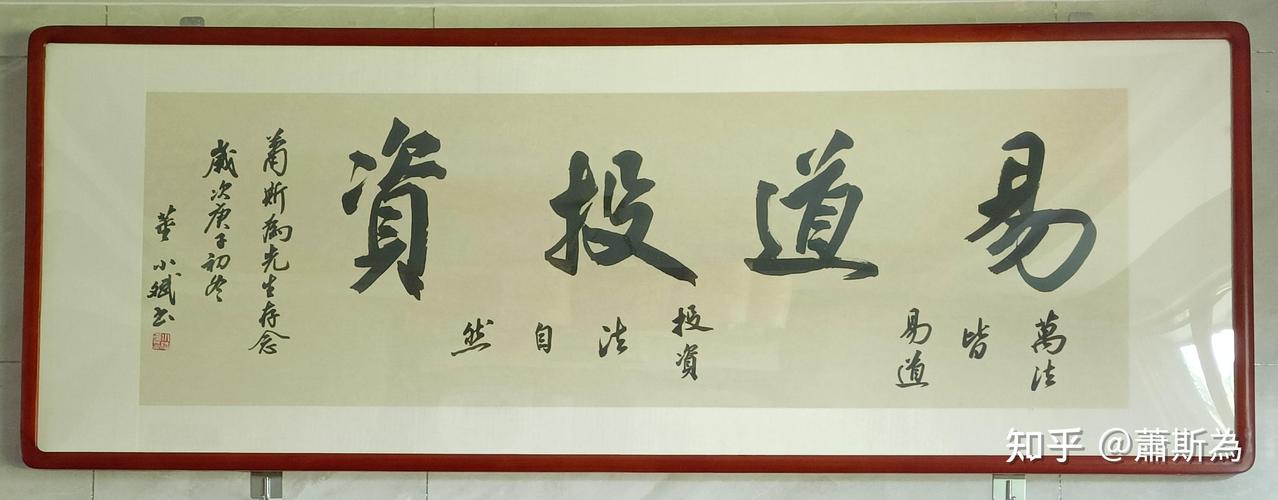 易道投資
萬法
皆
易道
投資
法
自
然
蕭斯為先生存念
歲次庚子初冬
董小斌书
知乎 @蕭斯為